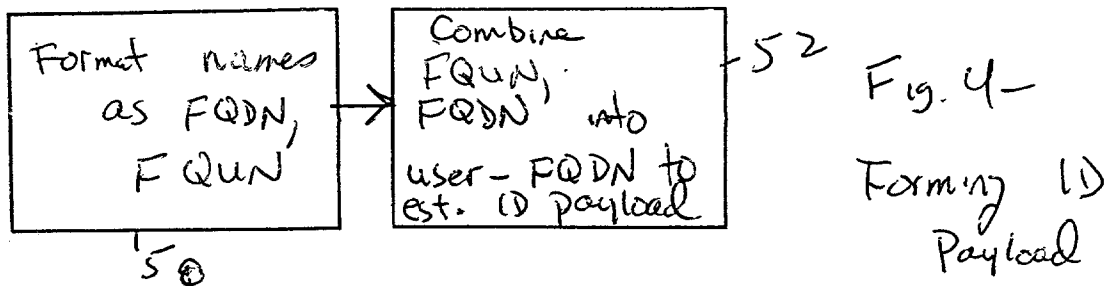 Format names
as FQDN,
FQUN
50
Combine
FQUN,
FQDN into
user-FQDN to
est. ID payload
52
Fig. 4-
Forming ID
Payload